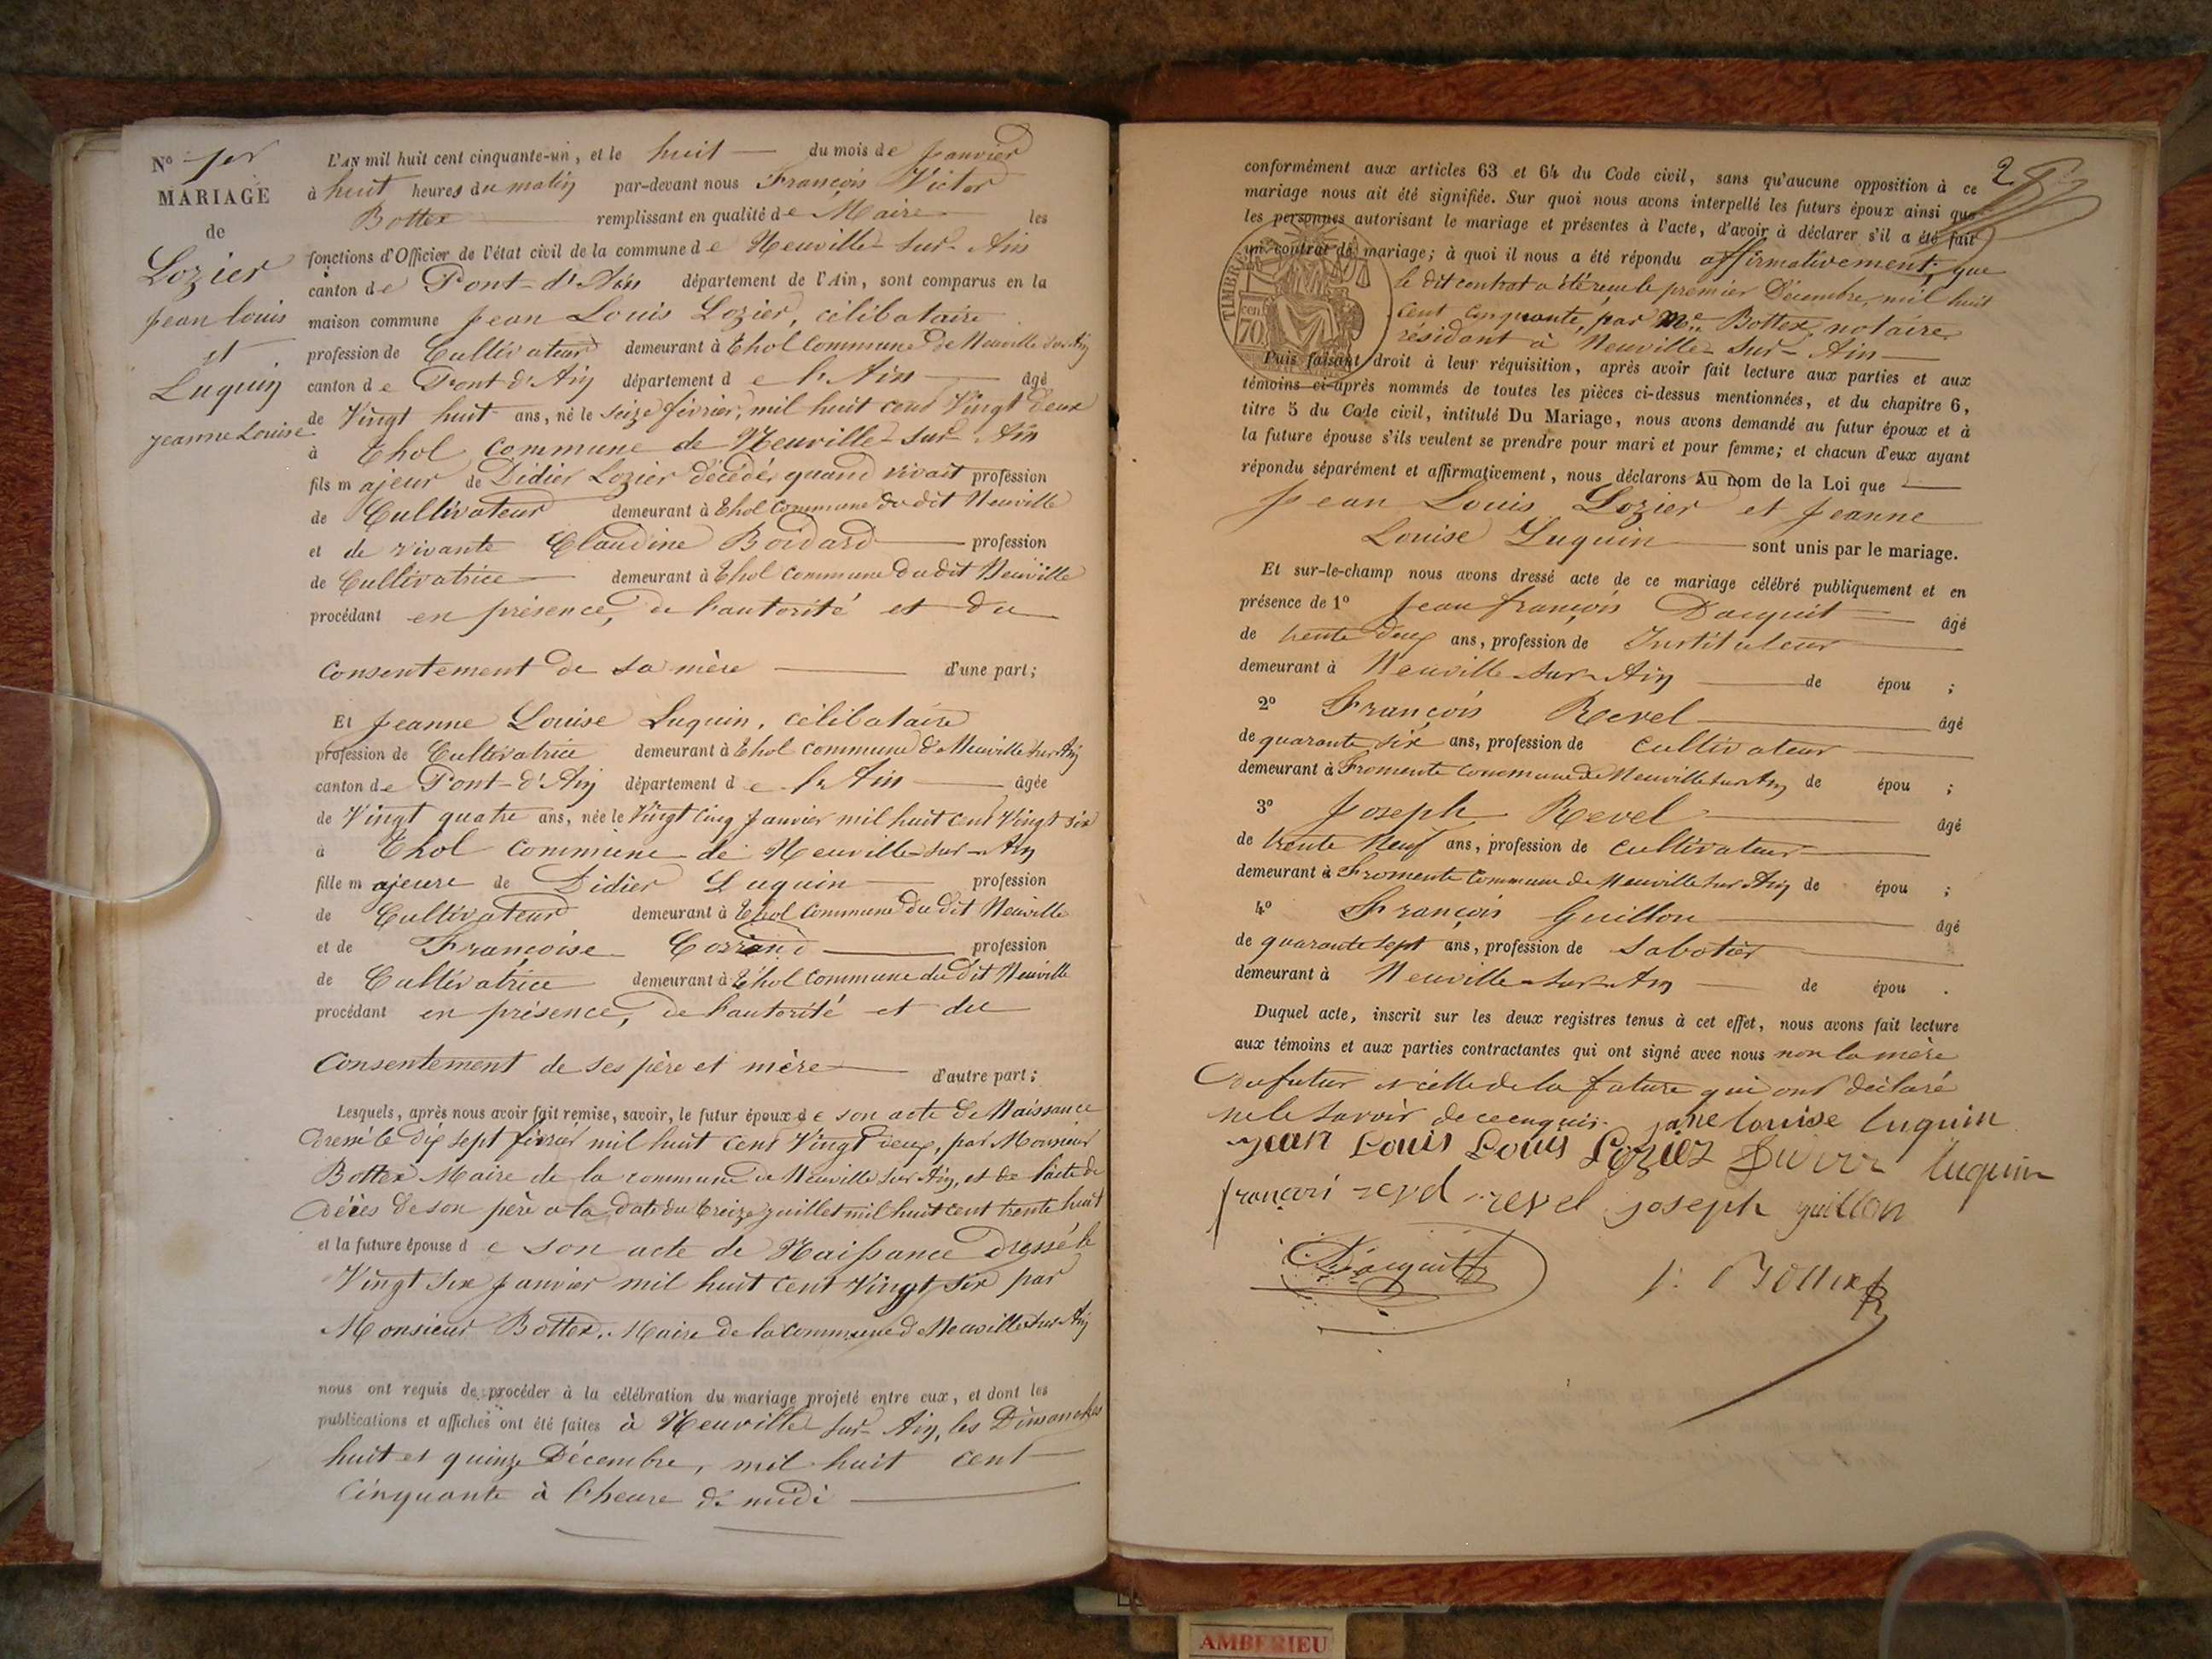 N° 1er
MARIAGE
de
Lozier
Jean Louis
et
Luquin
Jeanne Louise
L'AN mil huit cent cinquante-un, et le huit du mois de Janvier
à huit heures du matin par-devant nous François Victor
Bottex remplissant en qualité de Maire les
fonctions d'Officier de l'état civil de la commune de Neuville-sur-Ain
canton de Pont-d'Ain département de l'Ain, sont comparus en la
maison commune Jean Louis Lozier, célibataire
profession de Cultivateur demeurant à Thol Commune de Neuville sur Ain
canton de Pont-d'Ain département de l'Ain âgé
de Vingt huit ans, né le seize février, mil huit cent Vingt deux
à Thol Commune de Neuville-sur-Ain
fils majeur de Didier Lozier décédé, quand vivait profession
de Cultivateur demeurant à Thol Commune du dit Neuville
et de vivante Claudine Boidard profession
de Cultivatrice demeurant à Thol Commune du dit Neuville
procédant en présence, de l'autorité et du
Consentement de sa mère d'une part;
Et Jeanne Louise Luquin, célibataire
profession de Cultivatrice demeurant à Thol commune de Neuville sur Ain
canton de Pont-d'Ain département de l'Ain âgée
de Vingt quatre ans, née le Vingt cinq Janvier mil huit cent Vingt six
à Thol Commune de Neuville-sur-Ain
fille majeure de Didier Luquin profession
de Cultivateur demeurant à Thol Commune du dit Neuville
et de Françoise profession
de Cultivatrice demeurant à Thol Commune du dit Neuville
procédant en présence, de l'autorité et du
Consentement de ses père et mère d'autre part;
Lesquels, après nous avoir fait remise, savoir, le futur époux de son acte de Naissance
dressé le dix sept février mil huit cent Vingt deux, par Monsieur
Bottex Maire de la commune de Neuville sur Ain, et de l'acte de
décès de son père a la date du treize juillet mil huit cent trente huit
et la future épouse de son acte de Naissance dressé le
Vingt six Janvier mil huit cent Vingt six par
Monsieur Bottex, Maire de la commune de Neuville sur Ain
nous ont requis de procéder à la célébration du mariage projeté entre eux, et dont les
publications et affiches ont été faites à Neuville sur-Ain, les Dimanches
huit et quinze Décembre, mil huit cent
Cinquante à l'heure de midi
2
conformément aux articles 63 et 64 du Code civil, sans qu'aucune opposition à ce
mariage nous ait été signifiée. Sur quoi nous avons interpellé les futurs époux ainsi que
les personnes autorisant le mariage et présentes à l'acte, d'avoir à déclarer s'il a été fait
un contrat de mariage; à quoi il nous a été répondu affirmativement; que
le dit contrat a été reçu le premier Décembre, mil huit
cent cinquante, par Me Bottex, notaire
résidant à Neuville-sur-Ain
TIMBRE
cent
70
Puis faisant droit à leur réquisition, après avoir fait lecture aux parties et aux
témoins ci-après nommés de toutes les pièces ci-dessus mentionnées, et du chapitre 6,
titre 5 du Code civil, intitulé Du Mariage, nous avons demandé au futur époux et à
la future épouse s'ils veulent se prendre pour mari et pour femme; et chacun d'eux ayant
répondu séparément et affirmativement, nous déclarons Au nom de la Loi que
Jean Louis Lozier et Jeanne
Louise Luquin sont unis par le mariage.
Et sur-le-champ nous avons dressé acte de ce mariage célébré publiquement et en
présence de 1° Jean françois Dacquit âgé
de trente deux ans, profession de Instituteur
demeurant à Neuville-sur-Ain de épou ;
2° François Revel âgé
de quarante six ans, profession de cultivateur
demeurant à Fromente Commune de Neuville sur Ain de épou ;
3° Joseph Revel âgé
de trente Neuf ans, profession de cultivateur
demeurant à Fromente Commune de Neuville sur Ain de épou ;
4° François Guillon âgé
de quarante sept ans, profession de sabotier
demeurant à Neuville-sur-Ain de épou .
Duquel acte, inscrit sur les deux registres tenus à cet effet, nous avons fait lecture
aux témoins et aux parties contractantes qui ont signé avec nous non la mère
du futur et celle de la future qui ont déclaré
ne le savoir de ce enquis. jane louise luquin
Jean Louis Louis Lozier luquin
françoi revel revel joseph guillon
Dacquit
f. Bottex
AMBERIEU